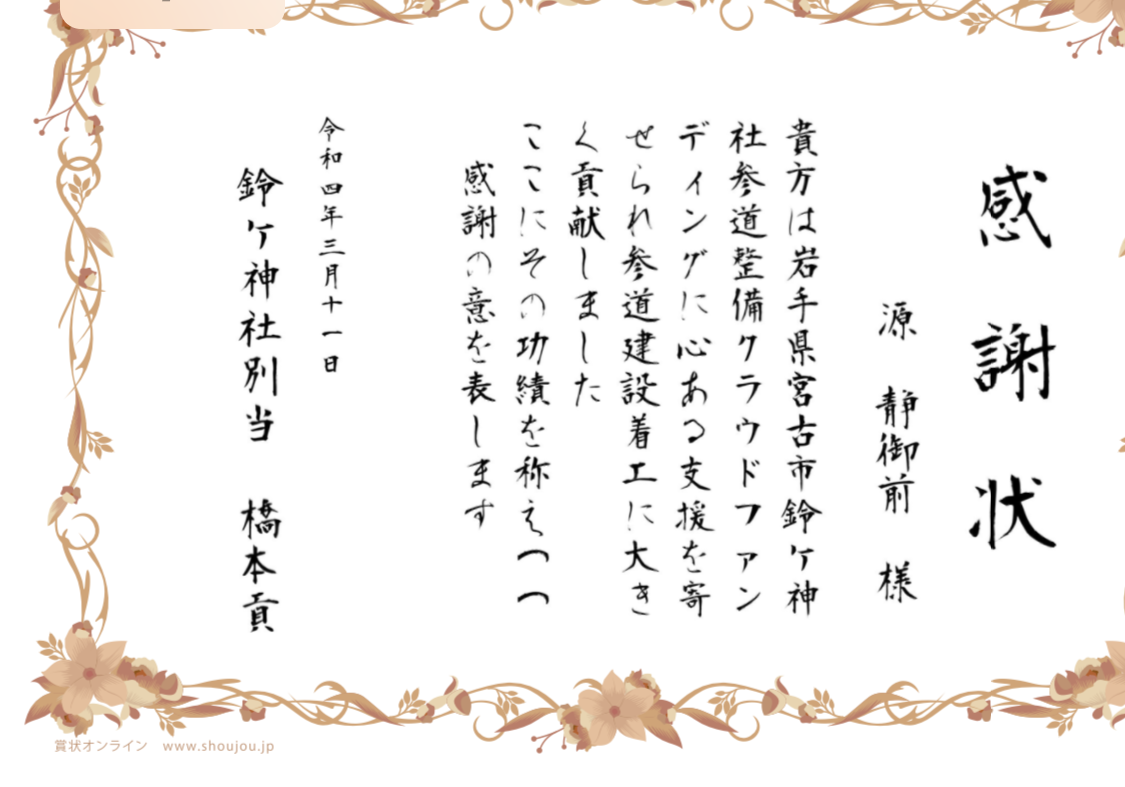 感謝状
源 静御前 様
貴方は岩手県宮古市鈴ケ神
社参道整備クラウドファン
ディングに心ある支援を寄
せられ参道建設着工に大き
く貢献しました
ここにその功績を称え⌒⌒
感謝の意を表します
令和四年三月十一日
鈴ケ神社別当 橋本貢
賞状オンライン www.shoujou.jp